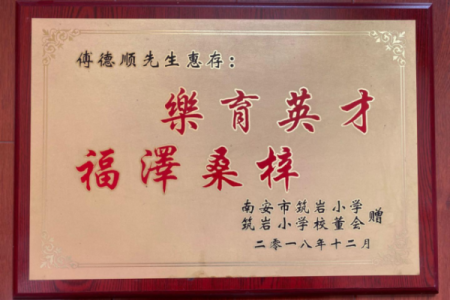 傅德顺先生惠存：
樂育英才
福澤桑梓
南安市筑岩小学
筑岩小学校董会
赠
二零一八年十二月